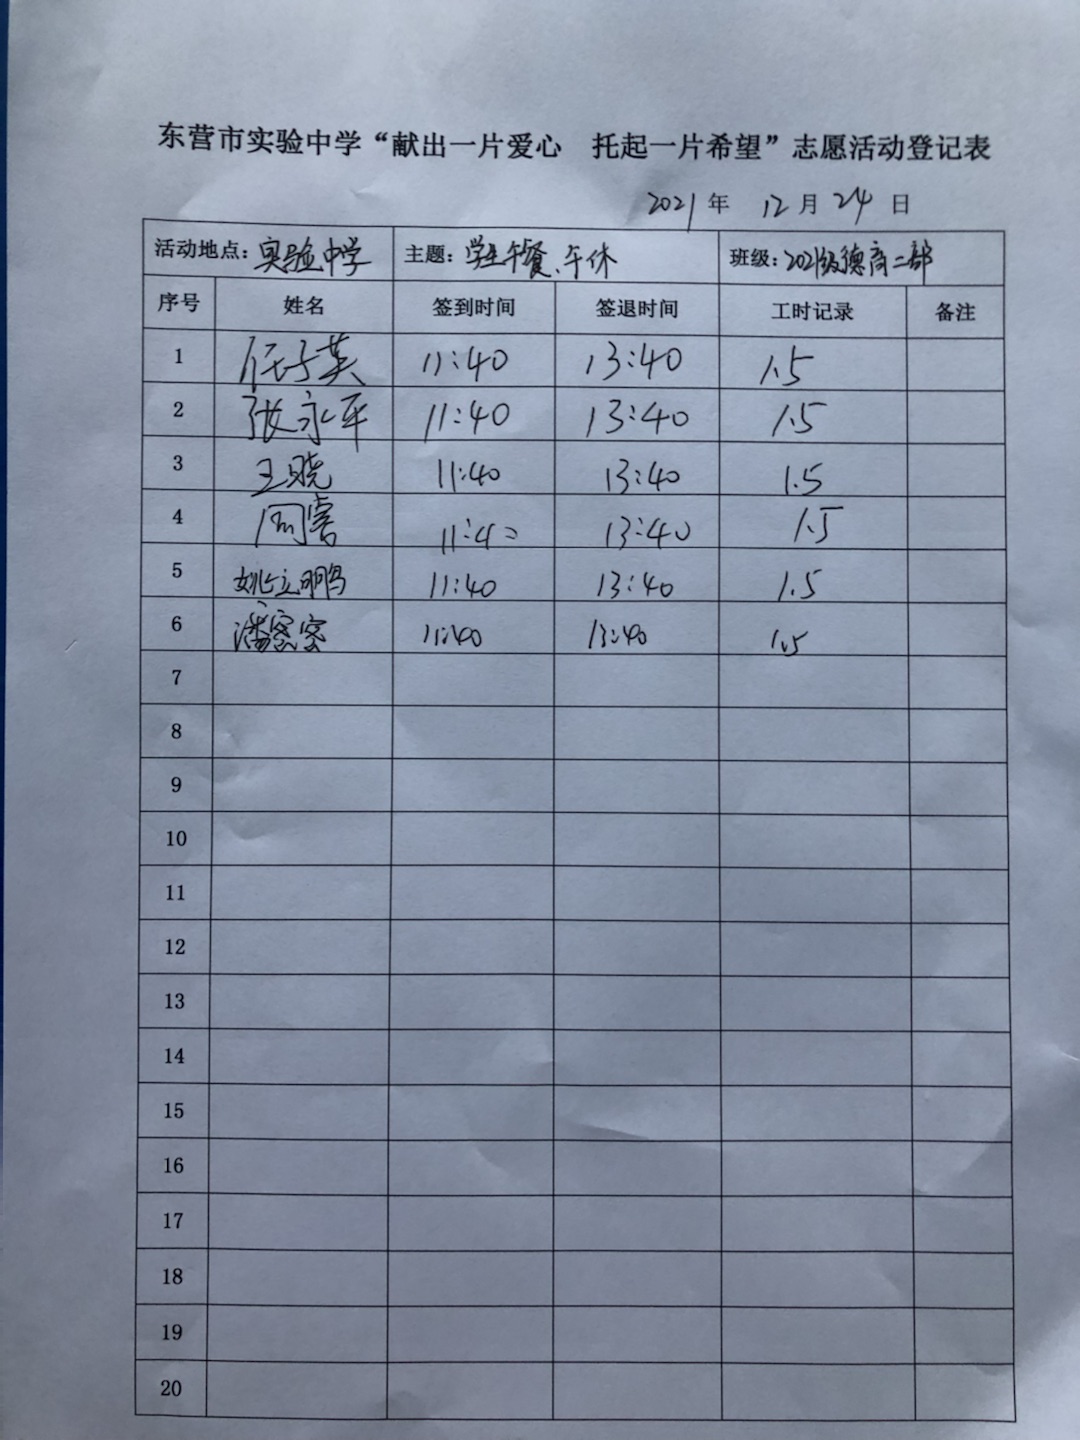 东营市实验中学“献出一片爱心 托起一片希望”志愿活动登记表
2021年 12月24日
活动地点：实验中学 主题：学生午餐、午休 班级：2021级德高二部
序号 姓名 签到时间 签退时间 工时记录 备注
1 任子英 11:40 13:40 1.5
2 张永平 11:40 13:40 1.5
3 王晓 11:40 13:40 1.5
4 周喜 11:40 13:40 1.5
5 姚立鹏 11:40 13:40 1.5
6 潘密密 11:40 13:40 1.5
7
8
9
10
11
12
13
14
15
16
17
18
19
20